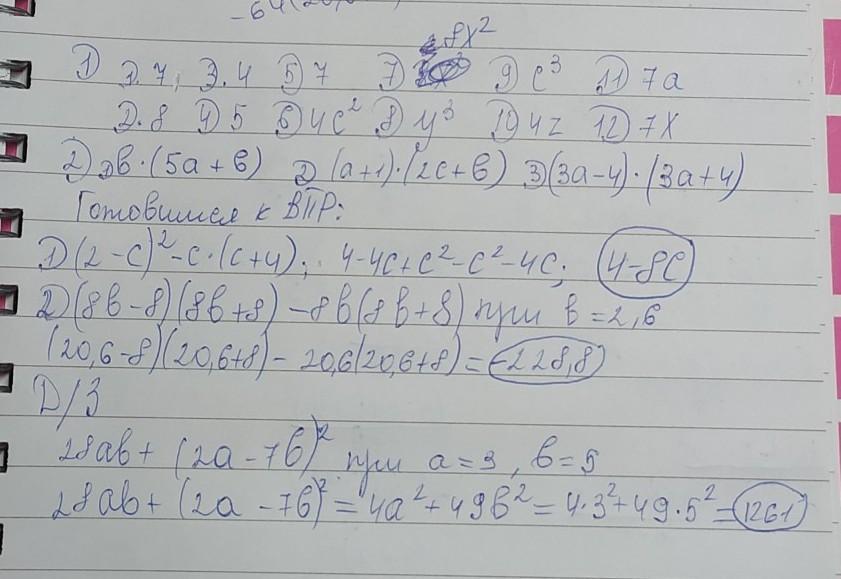 8x²
1) 1. 7, 3. 4 5) 7 7) 9) c³ 11) 7a
2. 8 4) 5 6) 4c² 8) y³ 10) 4z 12) 7x
2) 1) в·(5a+в) 2) (a+1)·(2c+в) 3) (3a-4)·(3a+4)
Готовимся к ВПР:
1) (2-c)²-c·(c+4); 4-4c+c²-c²-4c; 4-8c
2) (8в-8)(8в+8)-8в(8в+8) при в=2,6
(20,6-8)(20,6+8)-20,6(20,6+8)=-228,8
Д/З
28aв+(2a-7в)² при a=3, в=5
28aв+(2a-7в)²=4a²+49в²=4·3²+49·5²=1261